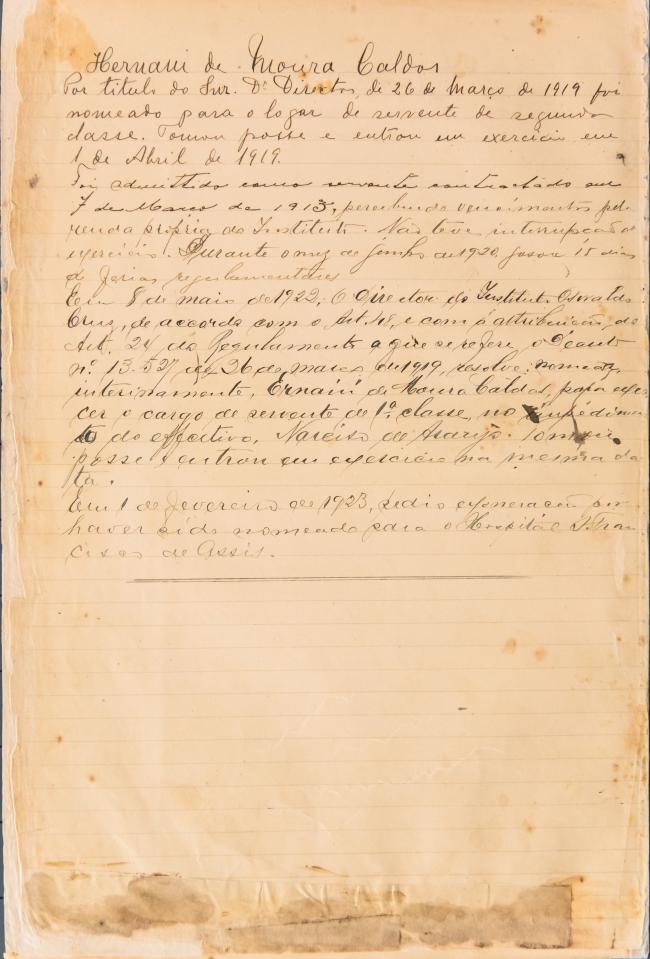 Hernani de Moura Caldas
Por titulo do Snr. Dr. Director, de 26 de Março de 1919 foi
nomeado para o logar de servente de segunda
classe. Tomou posse e entrou em exercicio em
1 de Abril de 1919.
Foi admittido como servente contractado em
7 de Março de 1913, percebendo vencimentos pela
renda própria do Instituto. Não teve interrupção de
exercicio. Durante o mez de junho de 1920 gosou 15 dias
de ferias regulamentares
Em 8 de maio de 1922, O Director do Instituto Oswaldo
Cruz, de accordo com o Art. 48, e com a attribuição do
Art. 24 do Regulamento a que se refere o Decreto
nº. 13.527 de 26 de março de 1919, resolve: nomear
interinamente, Ernani de Moura Caldas, para exer-
cer o cargo de servente de 1ª. classe, no impedimen-
to do effectivo, Narciso de Araujo. Tomou
posse e entrou em exercicio na mesma da-
ta.
Em 1 de fevereiro de 1923, pedio exoneração por
haver sido nomeado para o Hospital S. Fran-
cisco de Assis.